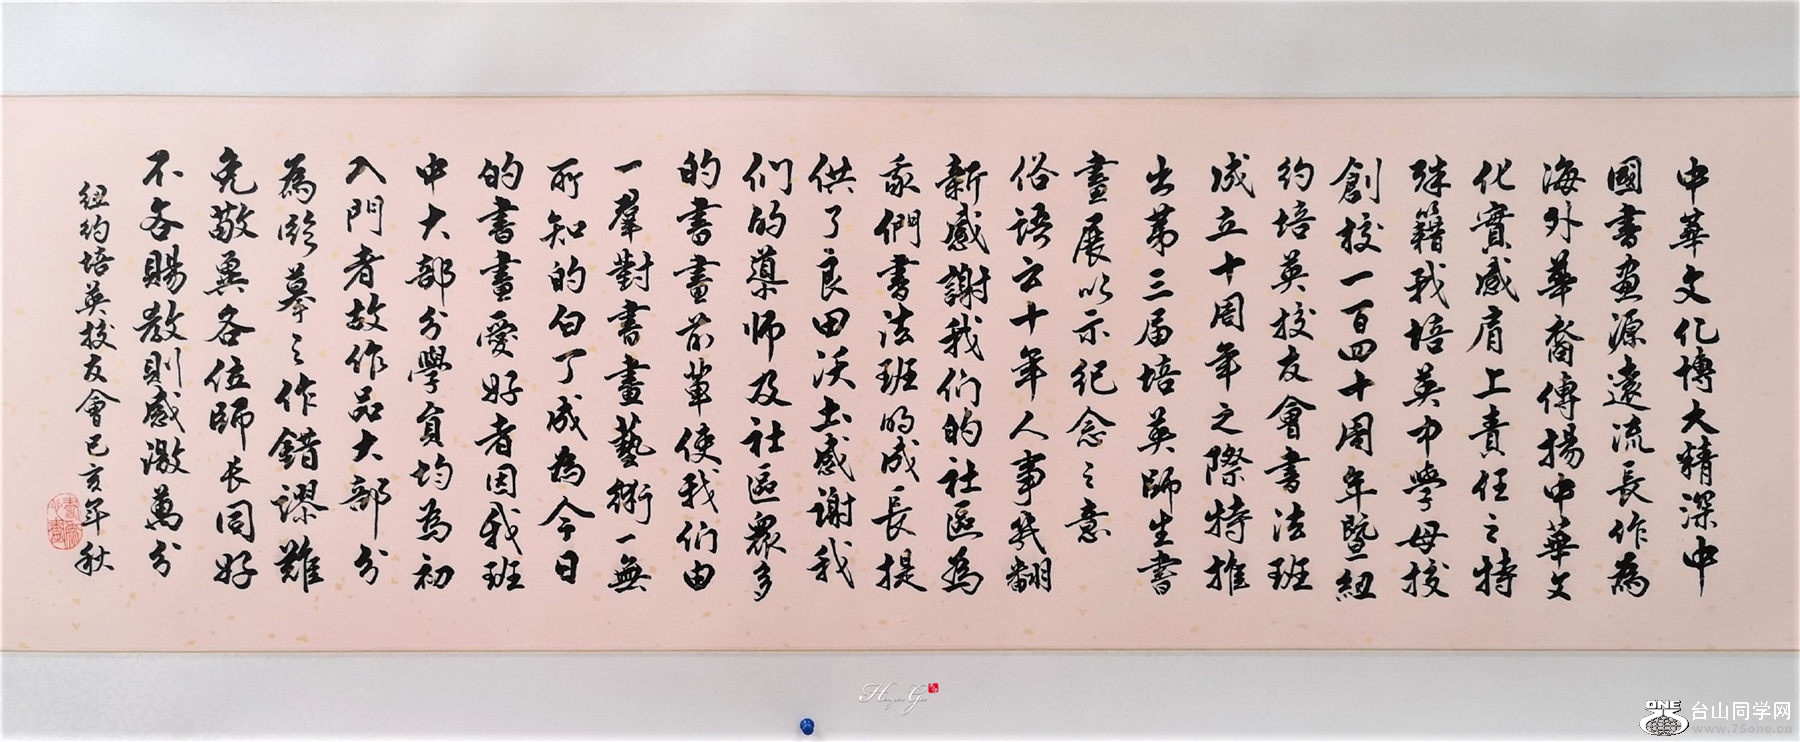 中華文化博大精深中
國書画源遠流長作為
海外華裔傳揚中華文
化實感肩上責任之特
殊籍我培英中學母校
創校一百四十周年暨紐
約培英校友會書法班
成立十周年之際特推
出第三届培英師生書
畫展以示纪念之意
俗語云十年人事幾翻
新感謝我们的社區為
我們書法班的成長提
供了良田沃土感谢我
们的導师及社區眾多
的書畫前輩使我们由
一羣對書畫藝術一無
所知的白丁成為今日
的書畫愛好者因我班
中大部分學員均為初
入門者故作品大部分
為临摹之作錯謬難
免敬異各位師长同好
不吝賜教則感激萬分
紐約培英校友會己亥年秋
台山同学网
www.75one.cn
ONE